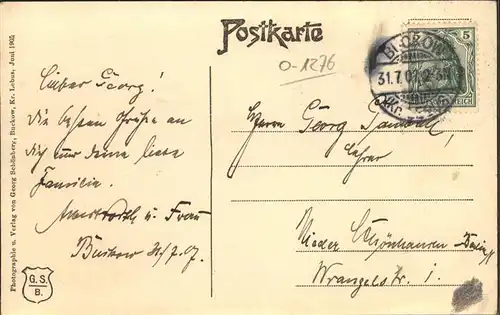 Photographie u. Verlag von Georg Schönberg, Buckow, Kr. Lebus, Juni 1905
G. S.
B.
Postkarte
0-1276
BUCKOW
31.7.07. 2-3N
(Kr.
5
REICH
Lieber Georg!
Die besten Grüße an
dich und deine liebe
Familie.
u. Frau
Buckow 31/7.07.
Herrn Georg
Lehrer
Nieder Schönhausen
Wrangelstr. 1.